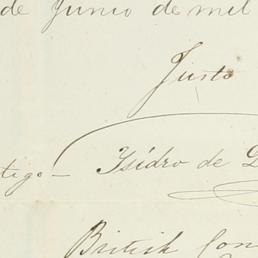 de Junio de mil
Justo
tigo - Isidro de
British Con